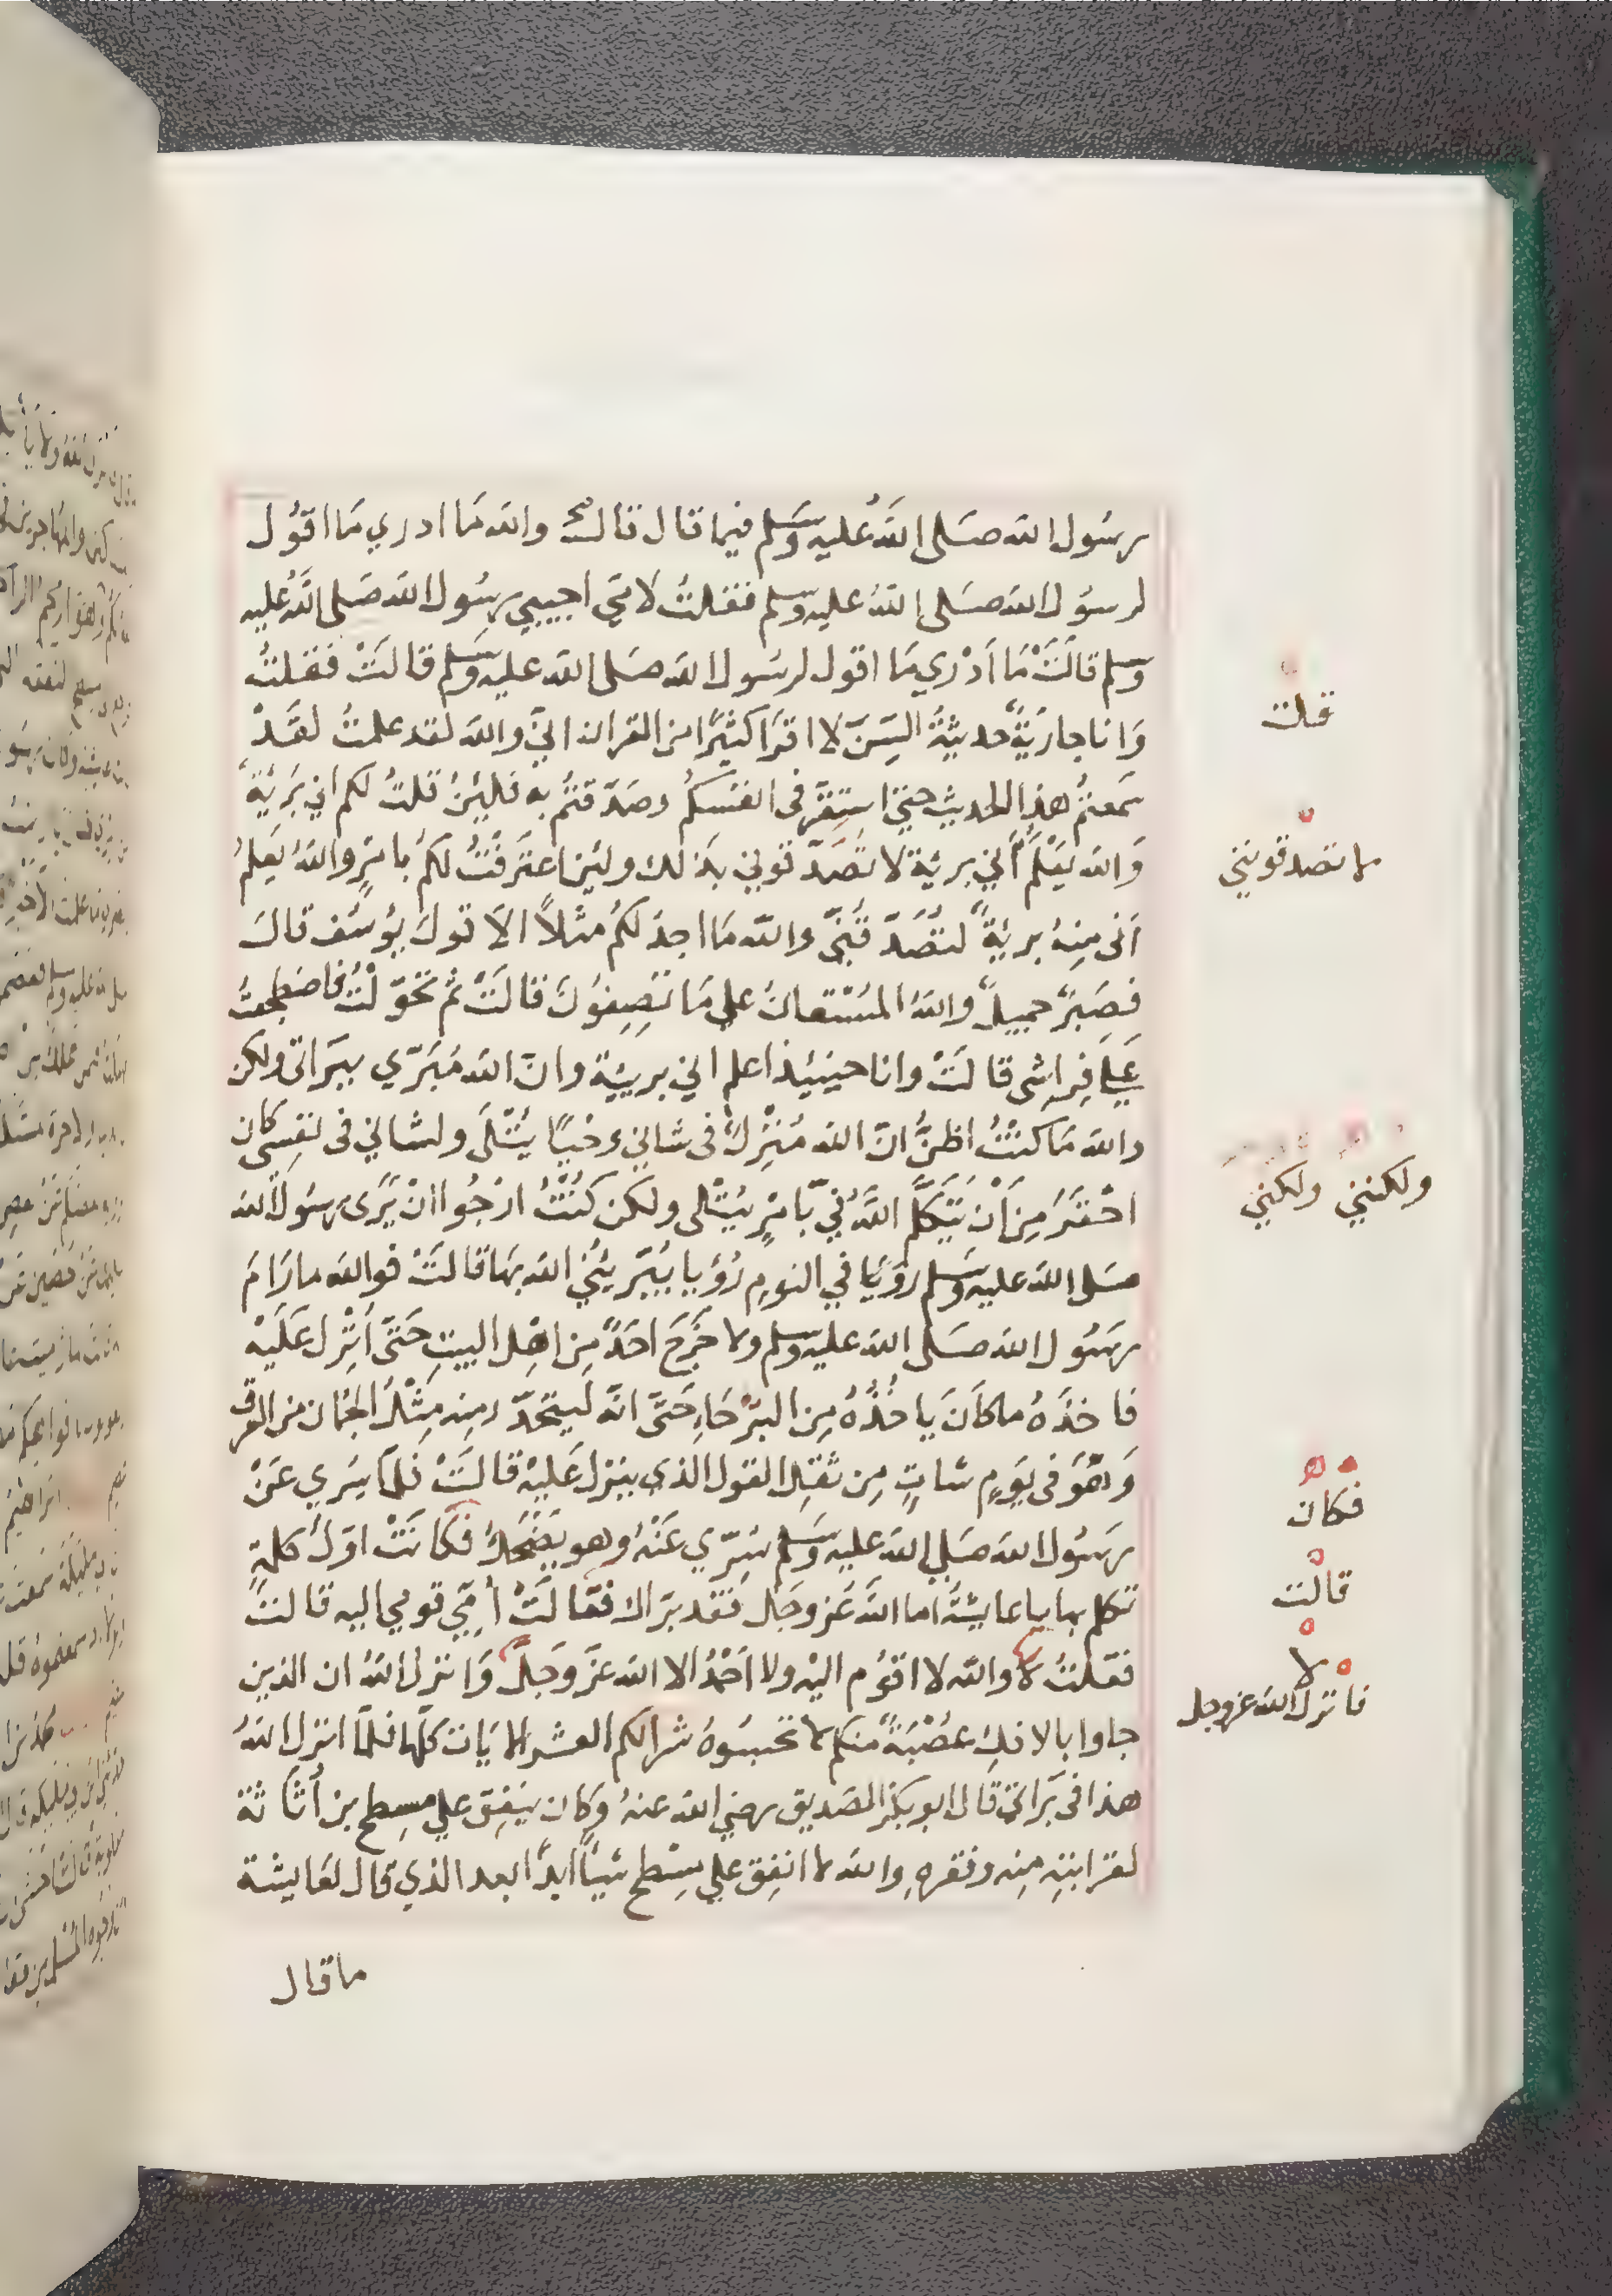 رسُول الله صَلى اللهُ عليه وَسَلم فيما قال قالت والله مَا ادري مَا اقوُل
لرسوُل الله صَلى اللهُ عليه وسلم فقلتُ لامّي اجيبي رسُول الله صَلى اللهُ عليه
وسلم قالَتْ مَا اَدْري مَا اقول لرسُول الله صَلى الله عليه وَسَلم قالتْ فقلتُ
وَانا جاريَةٌ حديثةُ السِّنّ لا اقرَا كثيْرًا من القران انيّ والله لقد علمتُ لقَدْ
سَمعتمُ هذا الحديث حتي استقرَّ فى انفسكمُ وصَدّقتمُ به فلَئِنْ قلتُ لكم اني بَريَئةٌ
وَالله يَعْلَمُ اَني بريئة لا تصَدّقوني بذلك ولئِن اعترَفْتُ لكمُ بامْرٍ واللهُ يَعلمُ
اَنى مِنهُ بريئةٌ لتُصَدّقُنّي والله مَا اجدُ لكمُ مثلاً الاّ قولَ يوُسُف قالَ
فصَبرٌ جميلٌ واللهُ المسُتعانُ على مَا تصِفوُنَ قالتْ ثمُ تحوّلْتُ فاضطجعتُ
عَلي فِراشى قالَتْ وانا حينيئذ اعلم اني بريئة وانّ الله مُبَرّي ببرَاتي ولكن
والله مَا كنتُ اظنُّ انّ الله مُنْزِلٌ فى شاني وحْيًا يتْلَى ولشاني فى نفسِى كان
احْقرَ مِنْ اَنْ يَتَكلمَّ اللهُ فيّ بامْرٍ يتْلى ولكن كنْتُ ارْجُوا انْ يَرَى رسُول الله
صَلى الله عليه وَسَلم رؤيَا في النومِ رُؤيا يُبَرّيُني الله بهَا قالتْ فوالله مارَامَ
رسَوُل الله صَلى الله عليه وسلم ولا خَرجَ احَدٌ مِن اهْل البيتِ حَتّى اُنْزِلَ عَلَيْه
فاخذَهُ ما كانَ ياخُذُهُ مِن البرَحَاءِ حَتىّ انّه ليتحَدّر مِنه مِثْلُ الجُمان من العرق
وَهوَ فى يَومٍ شاتٍ مِن ثقلِ القول الذي ينزل عَليْه قالتْ فلمّا سُرّي عَنْ
رسُول الله صَلي الله عليه وَسَلم سُرّي عَنْهُ وهو يَضْحَكُ فكانَتْ اوّلُ كلمةٍ
تكلم بها يا عايشةُ اما اللهُ عَز وجَل فقد برّاك فقالَتْ اُمِّي قومي اليه قالتْ
فقلتُ لا والله لا اقوُم اليْه ولا احْمُد الا الله عَزَ وَجَلّ وَانزل اللهُ ان الذين
جاوا بالافكِ عصْبَةٌ منكم لا تحسبُوهُ شرا لكم العشر الايَات كلّها فلمّا انزل اللهُ
هذا فى بَرَاتي قال ابو بكرْ الصّديق رضي الله عنهُ وَكان ينفِق علي مِسطحِ بن اُثاثة
لقرابتهِ مِنه وفقرهِ والله لا انفِق علي مِسْطح شياً ابدًا بعد الذي قال لعَايشة
ما قال
قلت
لا تصدقونني
ولكنني ولكني
فكان
قالت
لا
فانزل الله عز وجل